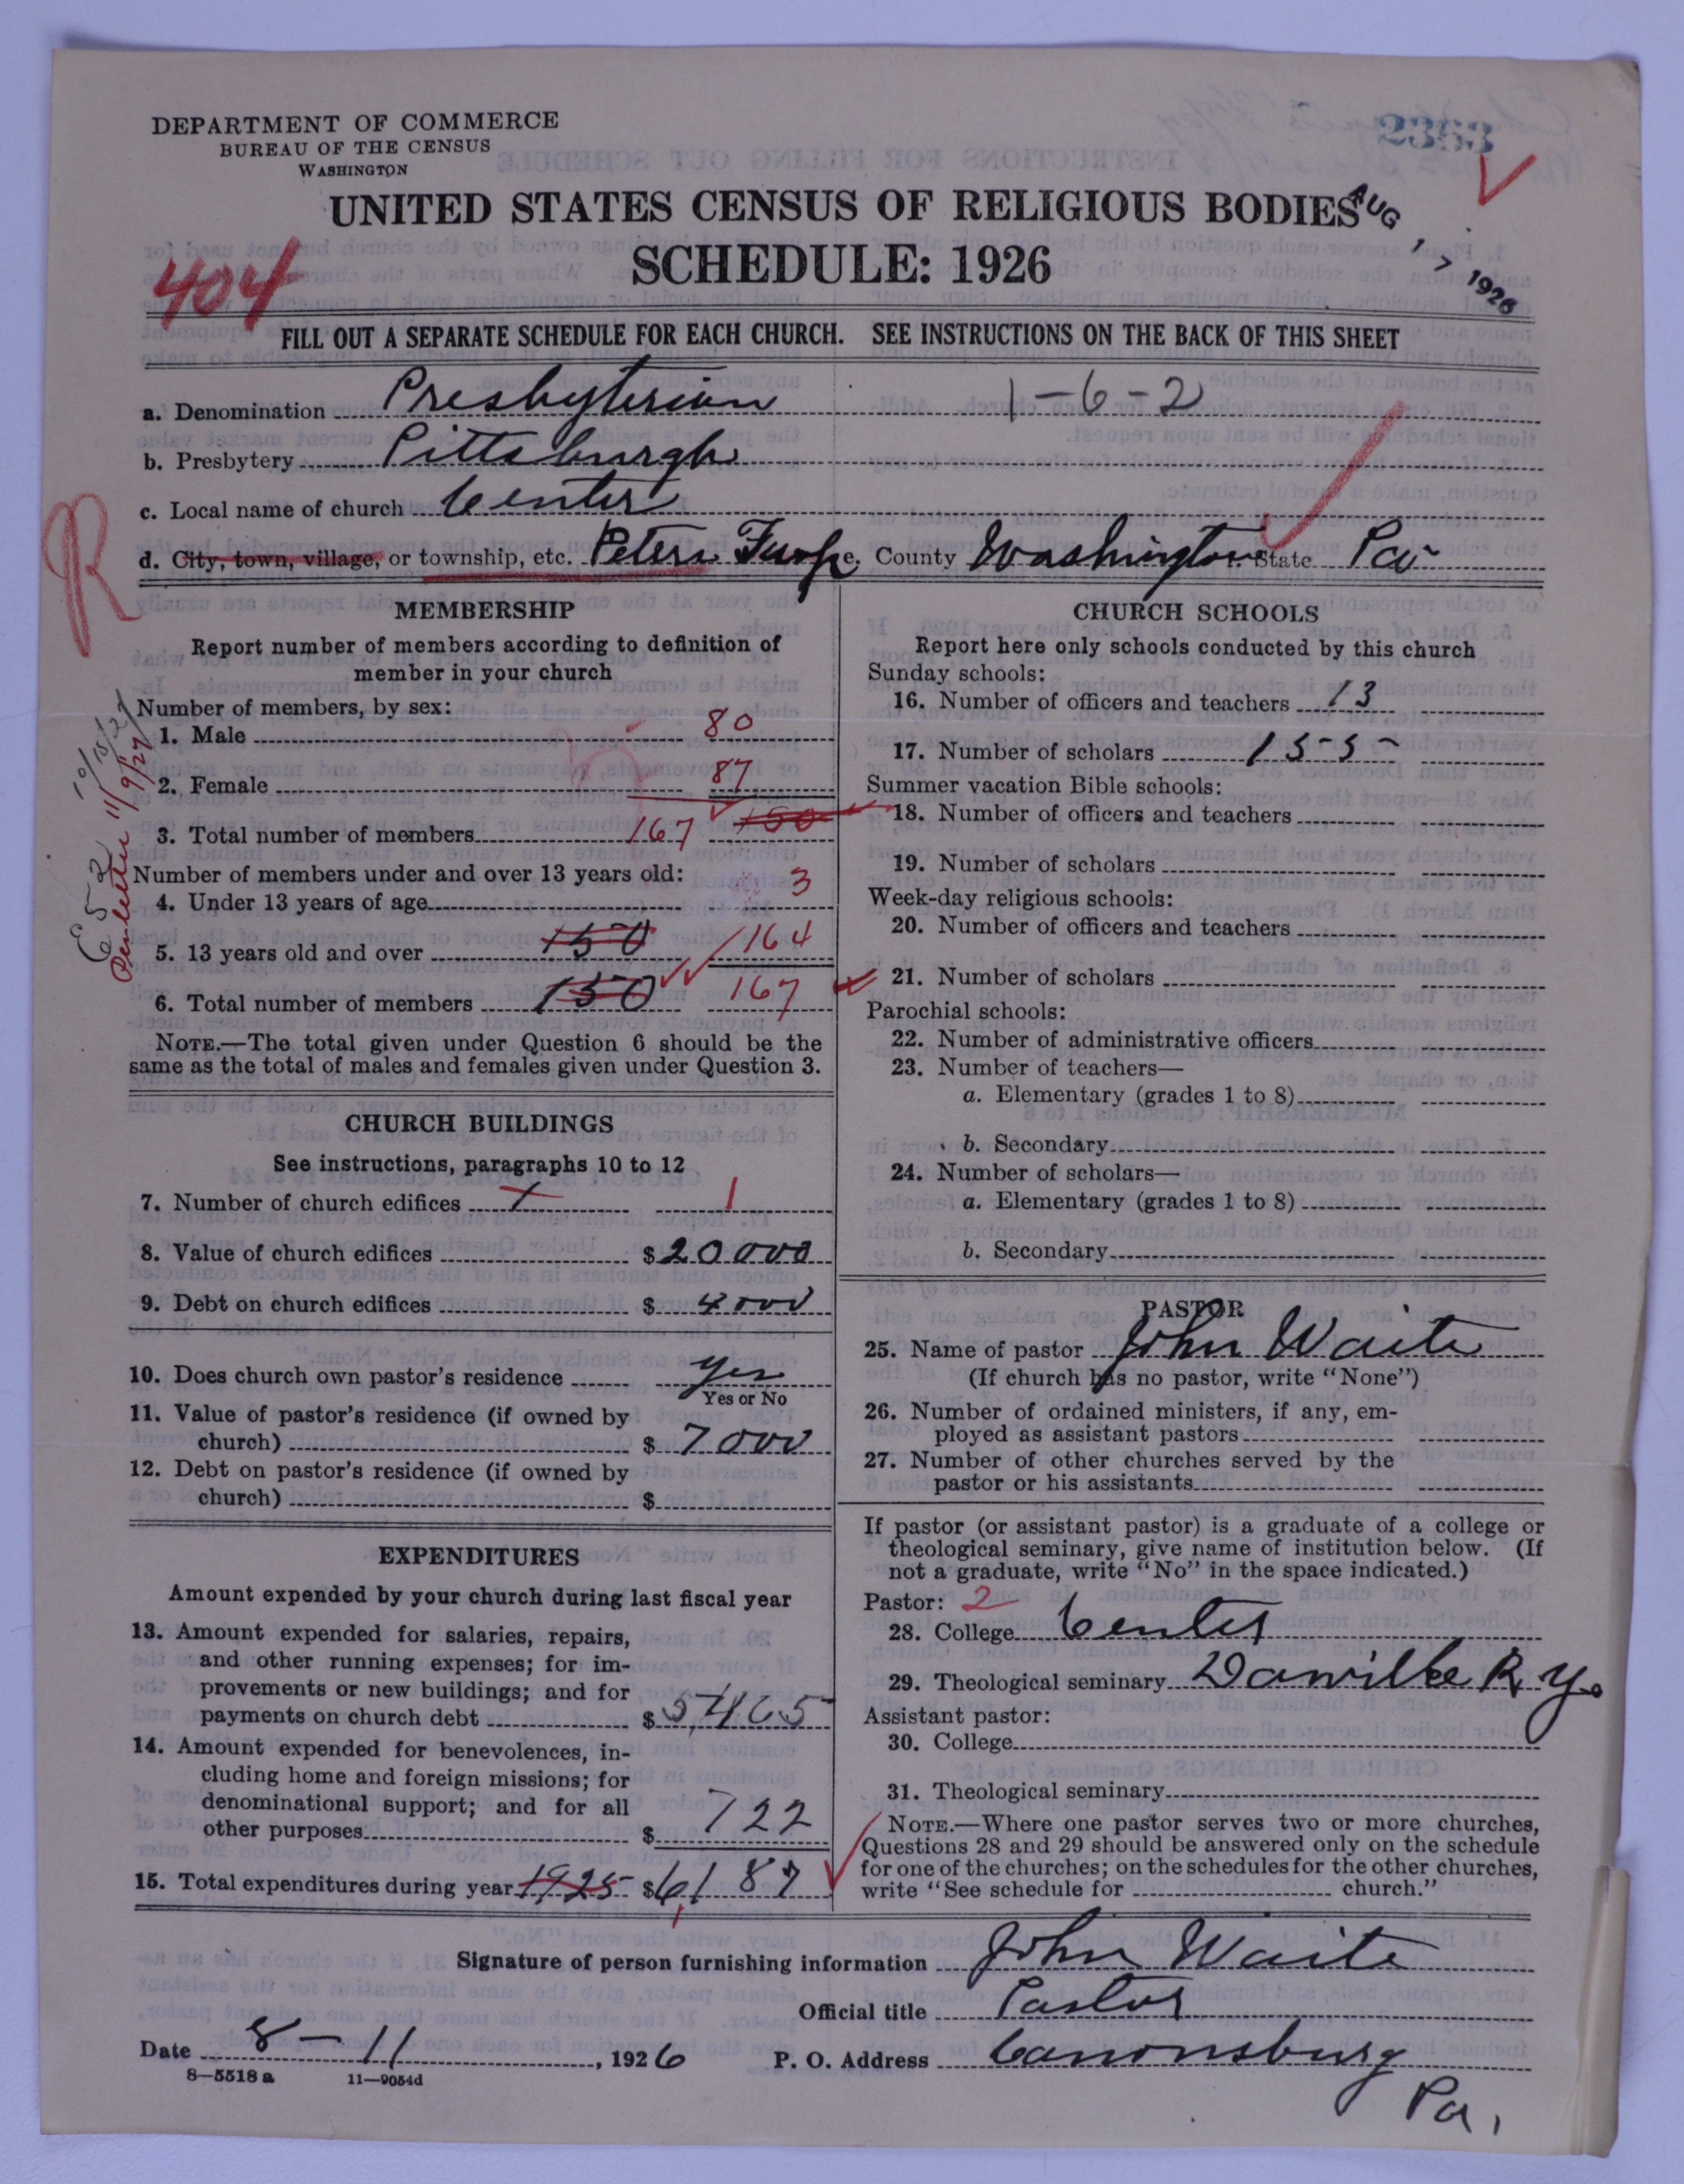 DEPARTMENT OF COMMERCE
BUREAU OF THE CENSUS
WASHINGTON
2353
UNITED STATES CENSUS OF RELIGIOUS BODIES
AUG 17 1926
SCHEDULE: 1926
404
FILL OUT A SEPARATE SCHEDULE FOR EACH CHURCH. SEE INSTRUCTIONS ON THE BACK OF THIS SHEET
a. Denomination Presbyterian 1-6-2
b. Presbytery Pittsburgh
c. Local name of church Center
R
d. City, town, village, or township, etc. Peters Twp e. County Washington State Pa
MEMBERSHIP
Report number of members according to definition of
member in your church
Number of members, by sex:
1. Male 80
2. Female 87
3. Total number of members 167 150
Number of members under and over 13 years old:
4. Under 13 years of age 3
5. 13 years old and over 150 164
6. Total number of members 150 167
NOTE.—The total given under Question 6 should be the
same as the total of males and females given under Question 3.
CHURCH BUILDINGS
See instructions, paragraphs 10 to 12
7. Number of church edifices 1 1
8. Value of church edifices $ 20000
9. Debt on church edifices $ 4000
10. Does church own pastor's residence yes
Yes or No
11. Value of pastor's residence (if owned by
church) $ 7000
12. Debt on pastor's residence (if owned by
church) $
EXPENDITURES
Amount expended by your church during last fiscal year
13. Amount expended for salaries, repairs,
and other running expenses; for im-
provements or new buildings; and for
payments on church debt $ 5,465
14. Amount expended for benevolences, in-
cluding home and foreign missions; for
denominational support; and for all
other purposes $ 722
15. Total expenditures during year 1925 $ 6,187
CHURCH SCHOOLS
Report here only schools conducted by this church
Sunday schools:
16. Number of officers and teachers 13
17. Number of scholars 155
Summer vacation Bible schools:
18. Number of officers and teachers
19. Number of scholars
Week-day religious schools:
20. Number of officers and teachers
21. Number of scholars
Parochial schools:
22. Number of administrative officers
23. Number of teachers—
a. Elementary (grades 1 to 8)
b. Secondary
24. Number of scholars—
a. Elementary (grades 1 to 8)
b. Secondary
PASTOR
25. Name of pastor John Waite
(If church has no pastor, write "None")
26. Number of ordained ministers, if any, em-
ployed as assistant pastors
27. Number of other churches served by the
pastor or his assistants
If pastor (or assistant pastor) is a graduate of a college or
theological seminary, give name of institution below. (If
not a graduate, write "No" in the space indicated.)
Pastor: 2
28. College Center
29. Theological seminary Danville K y.
Assistant pastor:
30. College
31. Theological seminary
NOTE.—Where one pastor serves two or more churches,
Questions 28 and 29 should be answered only on the schedule
for one of the churches; on the schedules for the other churches,
write "See schedule for church."
Signature of person furnishing information John Waite
Official title Pastor
Date 8-11, 1926 P. O. Address Canonsburg
Pa.
8—5518 a 11—9054d